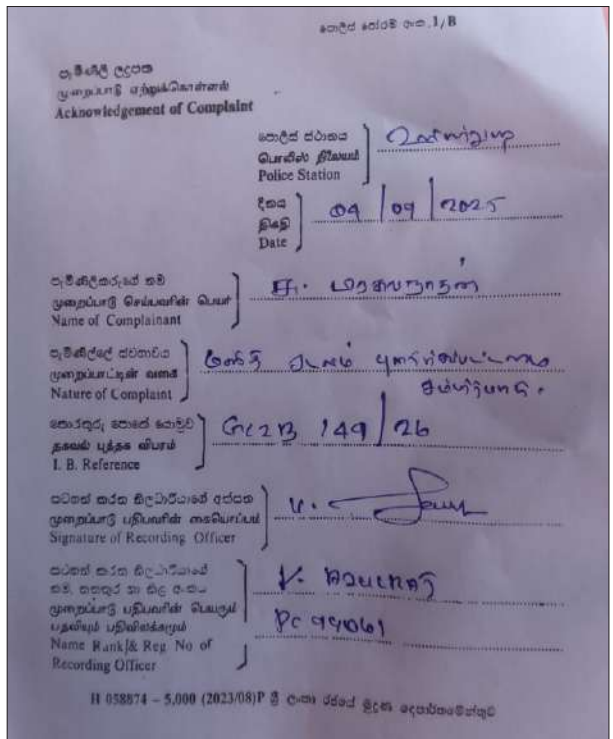 පොලිස් පෝරම අංක 1/B
පැමිණිලි ලදුපත
முறைப்பாடு ஏற்றுக்கொள்ளல்
Acknowledgement of Complaint
පොලිස් ස්ථානය
பொலிஸ் நிலையம்
Police Station
දිනය
திகதி
Date
09 / 2025
පැමිණිලිකරුගේ නම
முறைப்பாடு செய்பவரின் பெயர்
Name of Complainant
පැමිණිල්ලේ ස්වභාවය
முறைப்பாட்டின் வகை
Nature of Complaint
மனித
சம்பந்தமாக.
තොරතුරු පොතේ යොමුව
தகவல் புத்தக விபரம்
I. B. Reference
149 / 26
සටහන් කරන නිලධාරියාගේ අත්සන
முறைப்பாடு பதிபவரின் கையொப்பம்
Signature of Recording Officer
සටහන් කරන නිලධාරියාගේ
නම, තනතුර හා නිල අංකය
முறைப்பாடு பதிபவரின் பெயரும்
பதவியும் பதிவிலக்கமும்
Name Rank & Reg. No of
Recording Officer
PC
H 058874 – 5,000 (2023/08)P ශ්‍රී ලංකා රජයේ මුද්‍රණ දෙපාර්තමේන්තුව